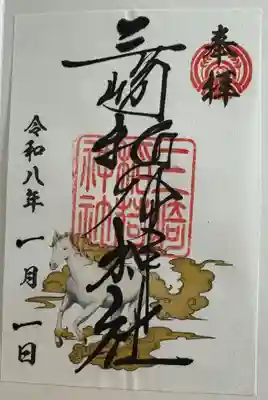 奉拝
三崎稲荷神社
三崎稲荷神社
令和八年
一月一日